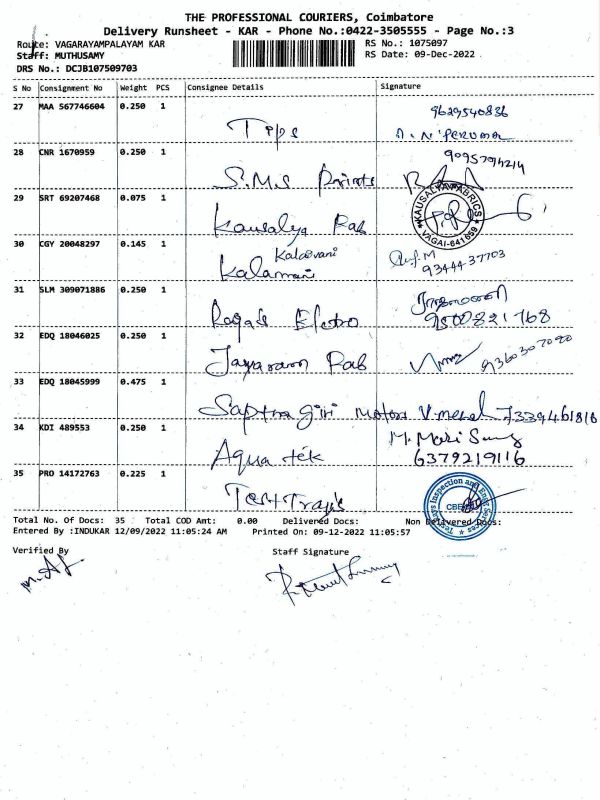 THE PROFESSIONAL COURIERS, Coimbatore
Delivery Runsheet - KAR - Phone No.:0422-3505555 - Page No.:3
Route: VAGARAYAMPALAYAM KAR
RS No.: 1075097
Staff: MUTHUSAMY
RS Date: 09-Dec-2022
DRS No.: DCJB107509703
S No Consignment No Weight PCS Consignee Details Signature
27 MAA 567746604 0.250 1
9629540836
28 CNR 1670959 0.250 1
S.M.S Prints
9095794214
29 SRT 69207468 0.075 1
Kausalya Fab
KAUSALYA FABRICS
VAGAI-641659
30 CGY 20048297 0.145 1
Kalaivani
Kalamani
93444 37703
31 SLM 309071886 0.250 1
9500821768
32 EDQ 18046025 0.250 1
Jayaram Fab
9360307090
33 EDQ 18045999 0.475 1
Saptha giri Motors
7339461816
34 KDI 489553 0.250 1
Aqua tek
6379219116
35 PRO 14172763 0.225 1
Total No. Of Docs: 35 Total COD Amt: 0.00 Delivered Docs: Non Delivered Docs:
Entered By :INDUKAR 12/09/2022 11:05:24 AM Printed On: 09-12-2022 11:05:57
Verified By Staff Signature